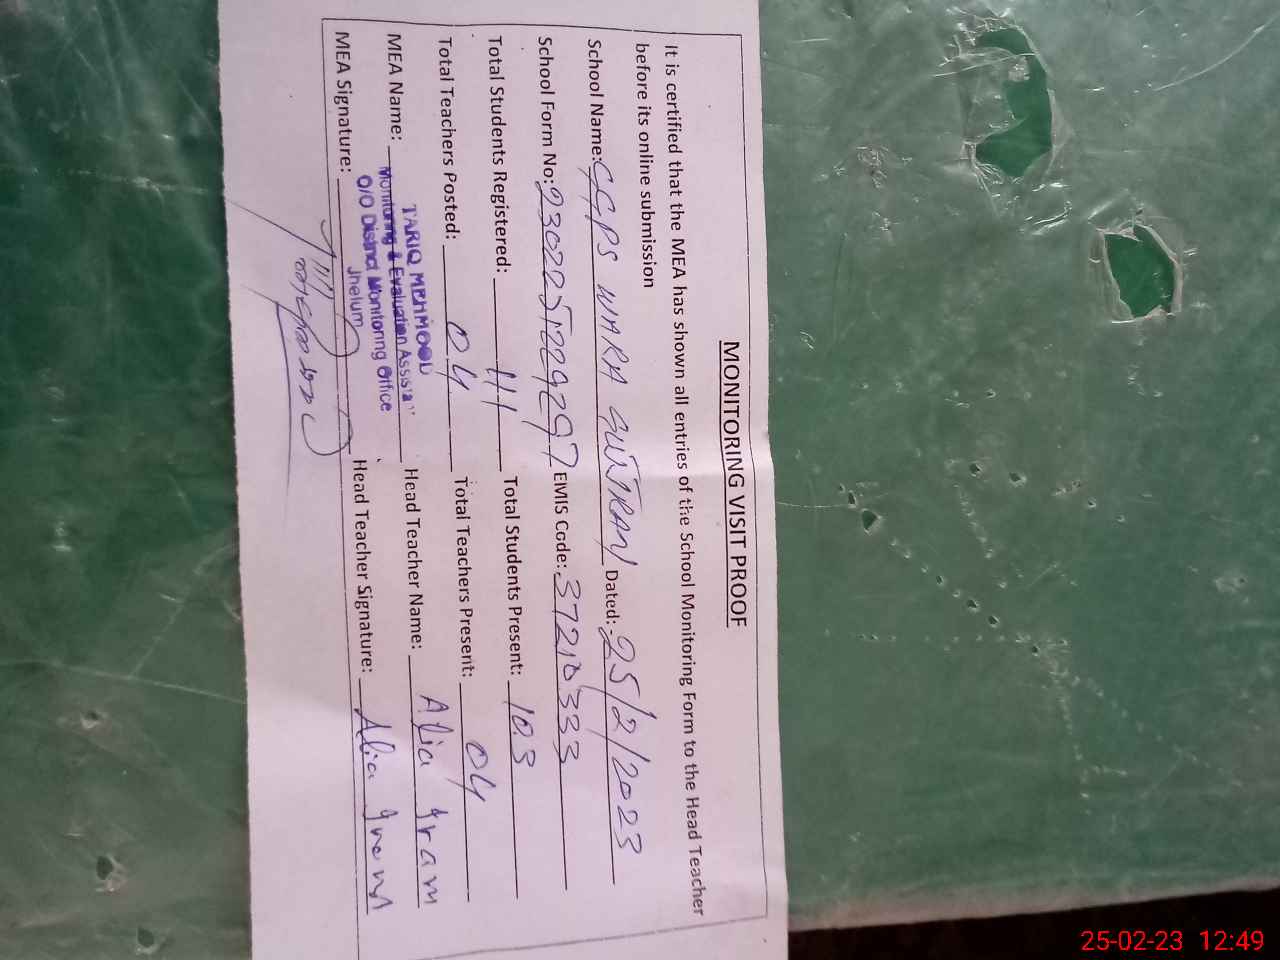 MONITORING VISIT PROOF
It is certified that the MEA has shown all entries of the School Monitoring Form to the Head Teacher
before its online submission
School Name: GGPS WARA GUJJRAN Dated: 25/2/2023
School Form No: EMIS Code: 37210333
Total Students Registered: 111 Total Students Present: 103
Total Teachers Posted: 04 Total Teachers Present: 04
MEA Name: TARIQ MEHMOOD Head Teacher Name: Alia Iram
Monitoring & Evaluation Assista
O/O District Monitoring Office
Jhelum
MEA Signature: Head Teacher Signature: Alia Iram
25-02-23 12:49